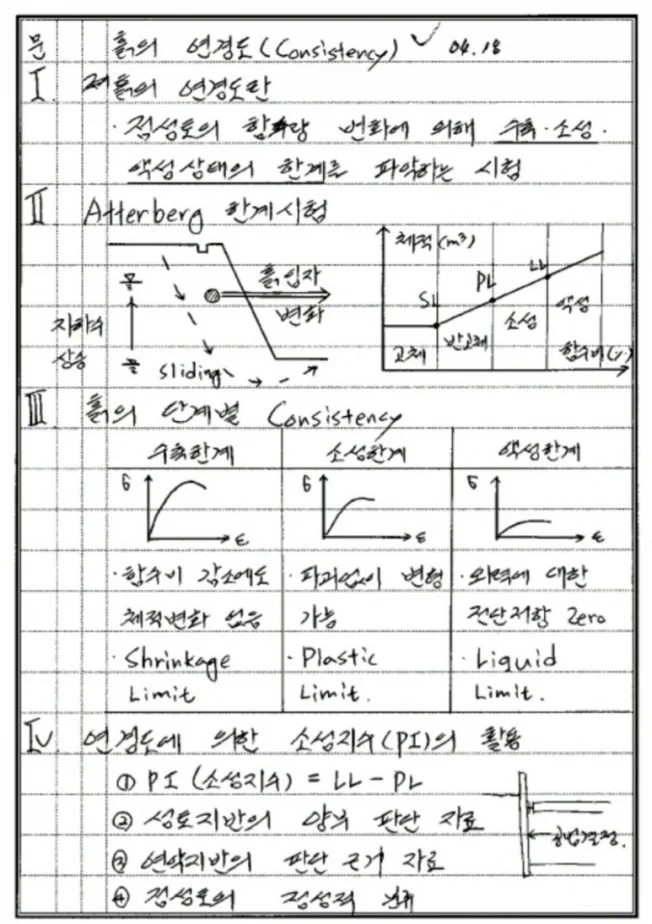 문 흙의 연경도(Consistency) 04.18
I. 흙의 연경도란
· 점성토의 함수량 변화에 의해 수축·소성·
액성상태의 한계를 파악하는 시험
II Atterberg 한계시험
체적(m³)
흙입자
변화
지하수
상승
물
sliding
SL
PL
LL
고체
반고체
소성
액성
함수비(%)
III 흙의 단계별 Consistency
수축한계 소성한계 액성한계
σ σ σ
ε ε ε
· 함수비 감소에도 · 파괴없이 변형 · 외력에 대한
체적변화 없음 가능 전단저항 Zero
· Shrinkage · Plastic · Liquid
Limit Limit. Limit.
IV 연경도에 의한 소성지수(PI)의 활용
① PI (소성지수) = LL - PL
② 성토지반의 양부 판단 자료
③ 연약지반의 판단 근거 자료
공법결정.
④ 점성토의 정성적 분류